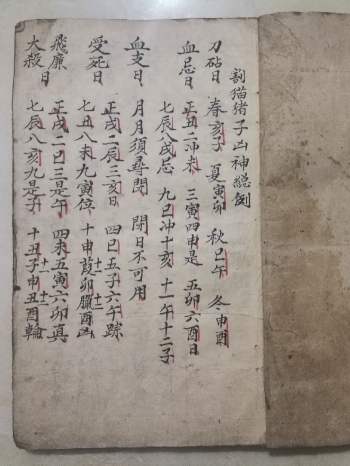 割猫猪子凶神總例
刀砧日 春亥子 夏寅卯 秋巳午 冬申酉
血忌日 正丑二冲未 三寅四申是 五卯六酉日
七辰八戌忌 九巳冲十亥 十一午十二子
血支日 月月須尋閉 閉日不可用
受死日 正戌二辰三亥日 四巳五子六午踪
七丑八未九寅位 十申十一卯臘酉
飛廉大殺日 正戌二巳三是午 四未五寅六卯真
七辰八亥九是子 十丑十一申十二酉輪